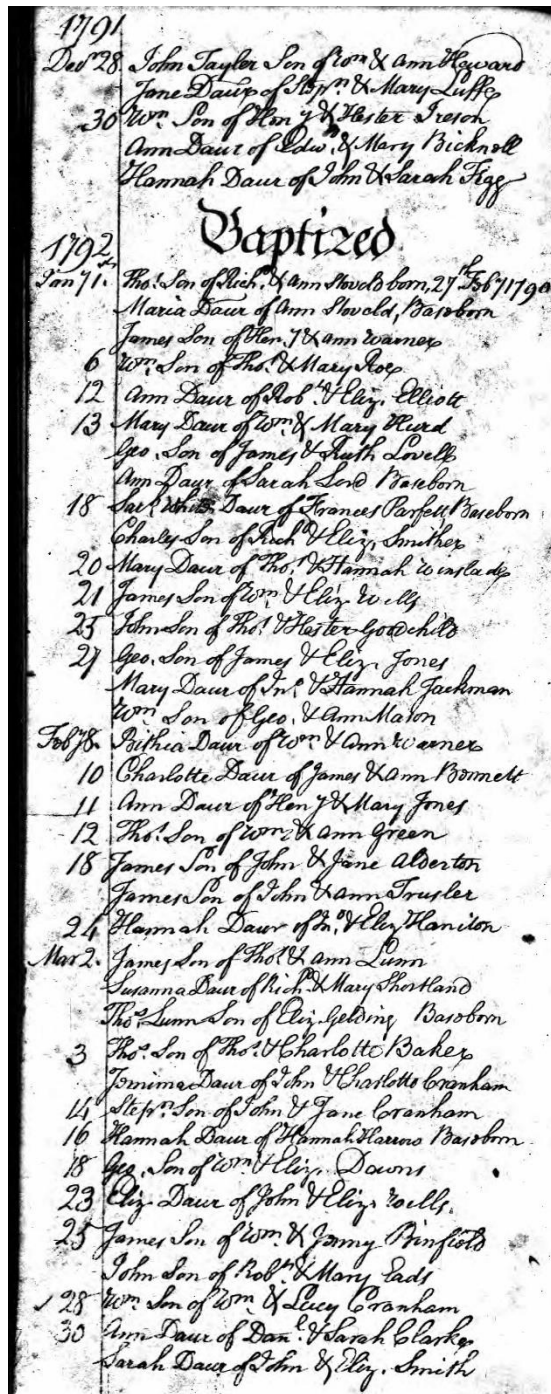 1791
Decr 28 John Tayler Son of Wm & Ann Heward
Jane Daur of Stepn & Mary Luff
30 Wm Son of Heny & Hester Ireson
Ann Daur of Edwd & Mary Bicknell
Hannah Daur of John & Sarah Figg
Baptized
1792
Jany 1st Thos Son of Richd & Ann Stoveld born, 27th Feby 1790
Maria Daur of Ann Stoveld, Baseborn
James Son of Heny & Ann Warner
6 Wm Son of Thos & Mary Roe
12 Ann Daur of Robt & Eliz. Elliott
13 Mary Daur of Wm & Mary Hurd
Geo. Son of James & Ruth Lovell
Ann Daur of Sarah Baseborn
18 Sarh White Daur of Frances Parfett Baseborn
Charles Son of Richd & Eliz. Smither
20 Mary Daur of Thos & Hannah Winslade
21 James Son of Wm & Eliz. Wells
25 John Son of Thos & Hester Goodchild
27 Geo. Son of James & Eliz. Jones
Mary Daur of Jno & Hannah Jackman
Wm Son of Geo. & Ann Mason
Feby 8. Bithia Daur of Wm & Ann Warner
10 Charlotte Daur of James & Ann Bennett
11 Ann Daur of Heny & Mary Jones
12 Thos Son of Wm & Ann Green
18 James Son of John & Jane Alderton
James Son of John & Ann Trusler
24 Hannah Daur of Jno & Eliz Haniton
Mar 2. James Son of Thos & Ann Lunn
Susanna Daur of Richd & Mary Shortland
Thos Lunn Son of Eliz Gelding Baseborn
3 Thos Son of Thos & Charlotte Baker
Jemima Daur of John & Charlotte Cranham
14 Stepn Son of John & Jane Cranham
16 Hannah Daur of Hannah Harrow Baseborn
18 Geo. Son of Wm & Eliz. Downs
23 Eliz. Daur of John & Eliz. Wells.
25 James Son of Wm & Jenny Binfield
John Son of Robt & Mary Eads
28 Wm Son of Wm & Lucy Cranham
30 Ann Daur of Danl & Sarah Clarke
Sarah Daur of John & Eliz. Smith